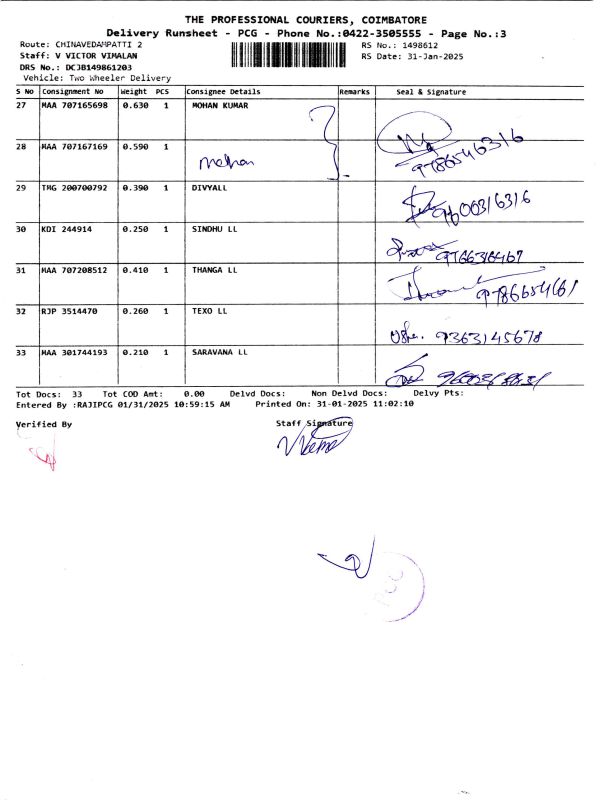 THE PROFESSIONAL COURIERS, COIMBATORE
Delivery Runsheet - PCG - Phone No.:0422-3505555 - Page No.:3
Route: CHINAVEDAMPATTI 2
RS No.: 1498612
Staff: V VICTOR VIMALAN
RS Date: 31-Jan-2025
DRS No.: DCJB149861203
Vehicle: Two Wheeler Delivery
S No Consignment No Weight PCS Consignee Details Remarks Seal & Signature
27 MAA 707165698 0.630 1 MOHAN KUMAR
28 MAA 707167169 0.590 1 mohan 9786546316
29 TMG 200700792 0.390 1 DIVYALL 9600316316
30 KDI 244914 0.250 1 SINDHU LL 9766316467
31 MAA 707208512 0.410 1 THANGA LL 9786654661
32 RJP 3514470 0.260 1 TEXO LL Usha. 9363145678
33 MAA 301744193 0.210 1 SARAVANA LL
Tot Docs: 33 Tot COD Amt: 0.00 Delvd Docs: Non Delvd Docs: Delvy Pts:
Entered By :RAJIPCG 01/31/2025 10:59:15 AM Printed On: 31-01-2025 11:02:10
Verified By Staff Signature
PCG